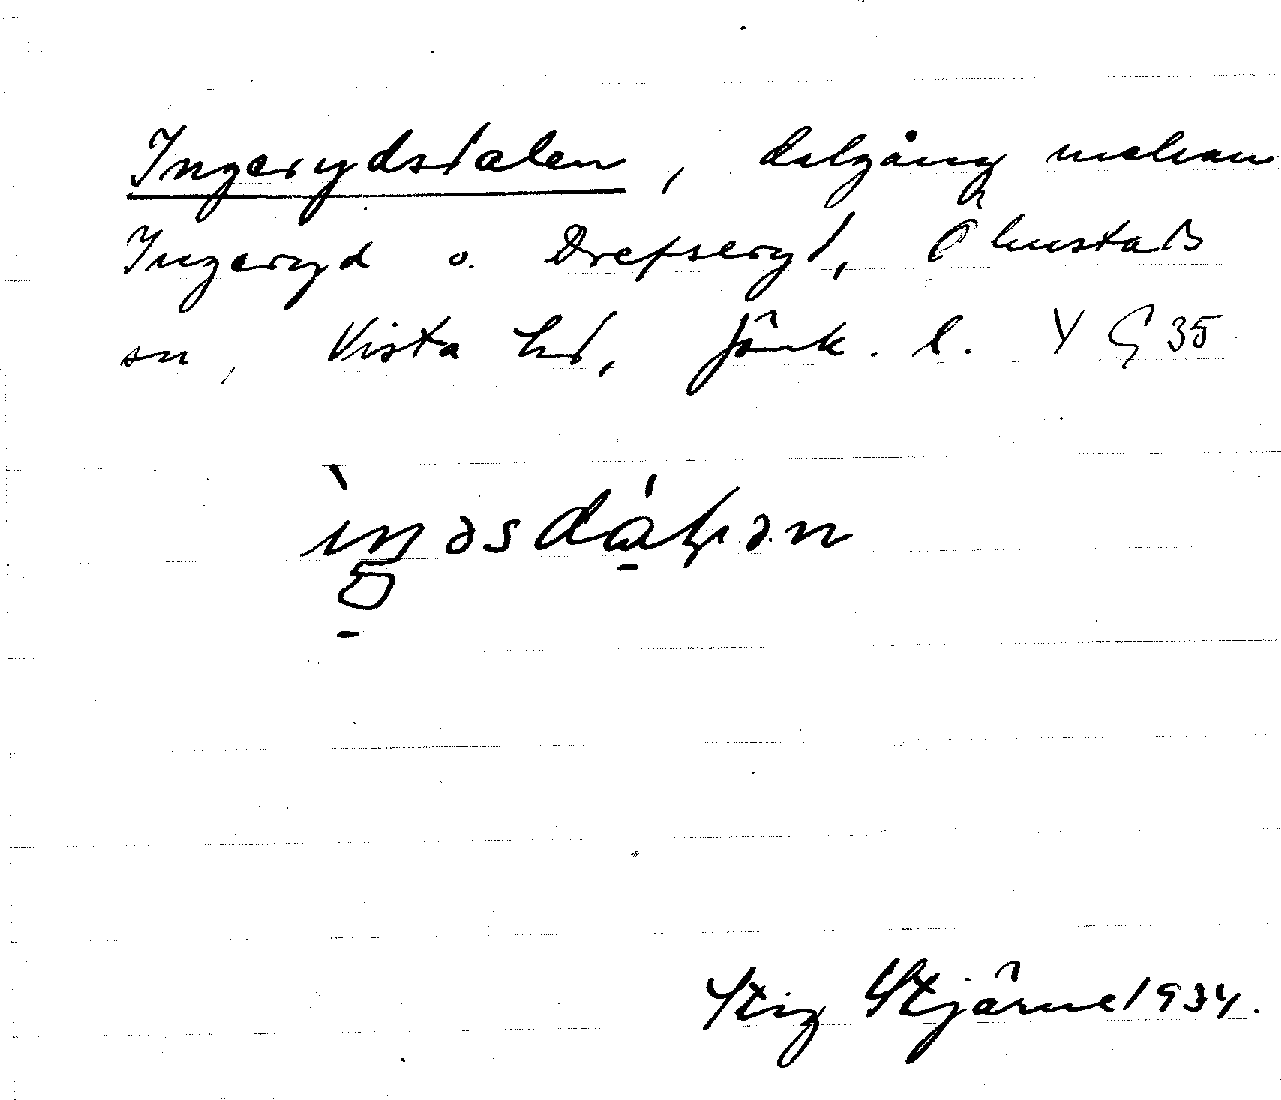 Ingerydsdalen, dalgång mellan
Ingeryd o. Drefseryd, Ölmstads
sn, Vista hd, Jönk. l. Y G 35
ìŋəsdálən
Stig Stjärne 1934.